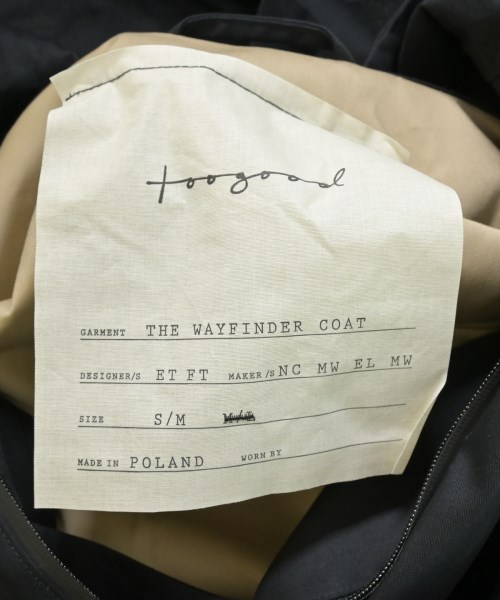 toogood
GARMENT THE WAYFINDER COAT
DESIGNER/S ET FT MAKER/S NC MW EL MW
SIZE S/M
MADE IN POLAND WORN BY